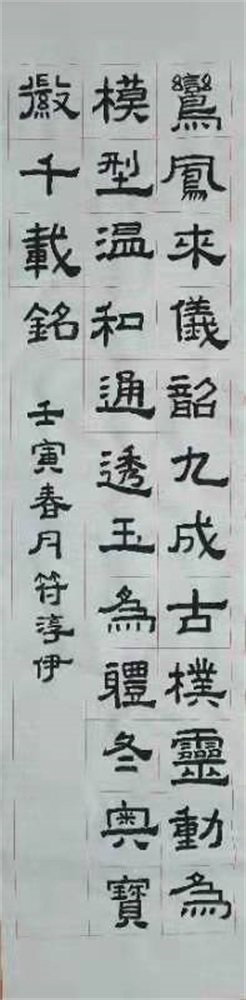 鸞鳳來儀韶九成古樸靈動為
模型温和通透玉為軆冬奥寶
徽千載銘
壬寅春月符淳伊